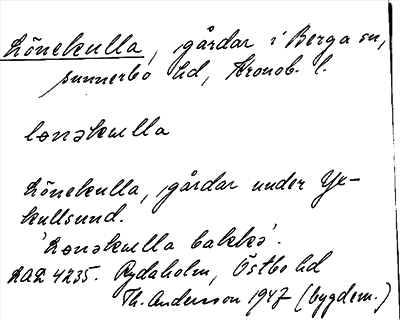 Lönekulla, gårdar i Berga sn,
Sunnerbo hd, Kronob. l.
lønəkulla
Lönekulla, gårdar under Yx-
kullsund.
'Lønəkulla bakkə'.
RAÄ 4235. Rydaholm, Östbo hd
Th. Andersson 1947 (bygdem.)